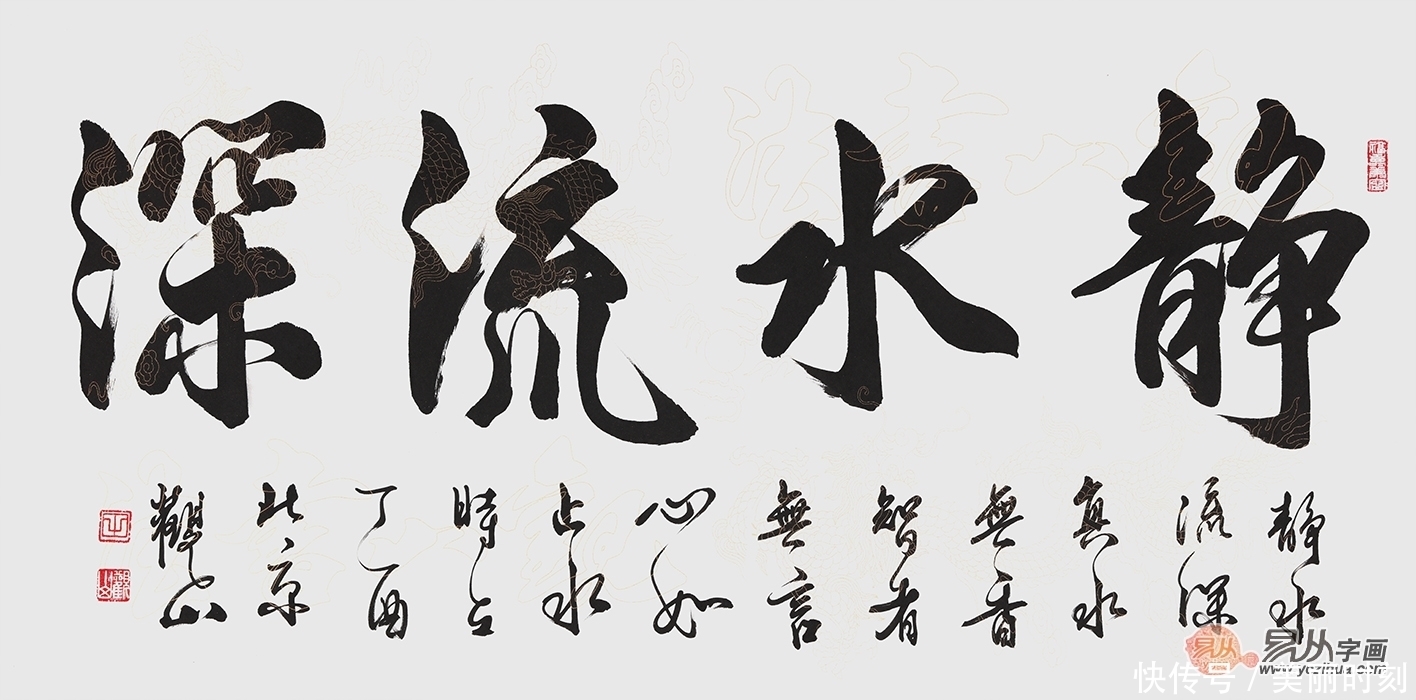 静水流深
静水
流深
真水
無香
智者
無言
心如
止水
時在
丁酉
北京
觀山
易从字画
www.yczihua.com
快传号 / 美丽时刻